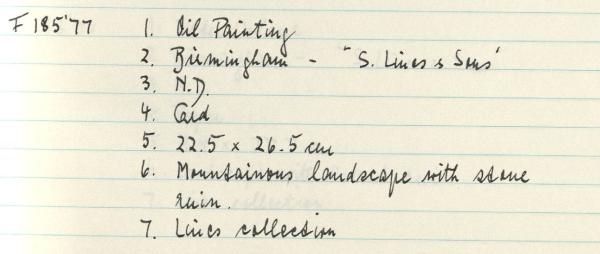 F 185'77 1. Oil Painting
2. Birmingham - "S. Lines & Sons'
3. N.D.
4. Card
5. 22.5 x 26.5 cm
6. Mountainous landscape with stone
ruin.
7. Lines collection